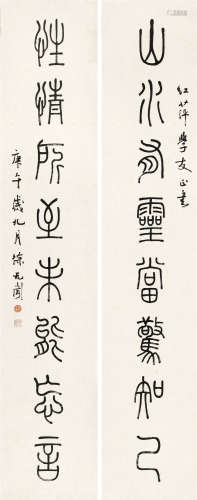 紅萍學友正書
山水有靈當驚知己
性情所至未能忘言
庚午歲九月徐无聞